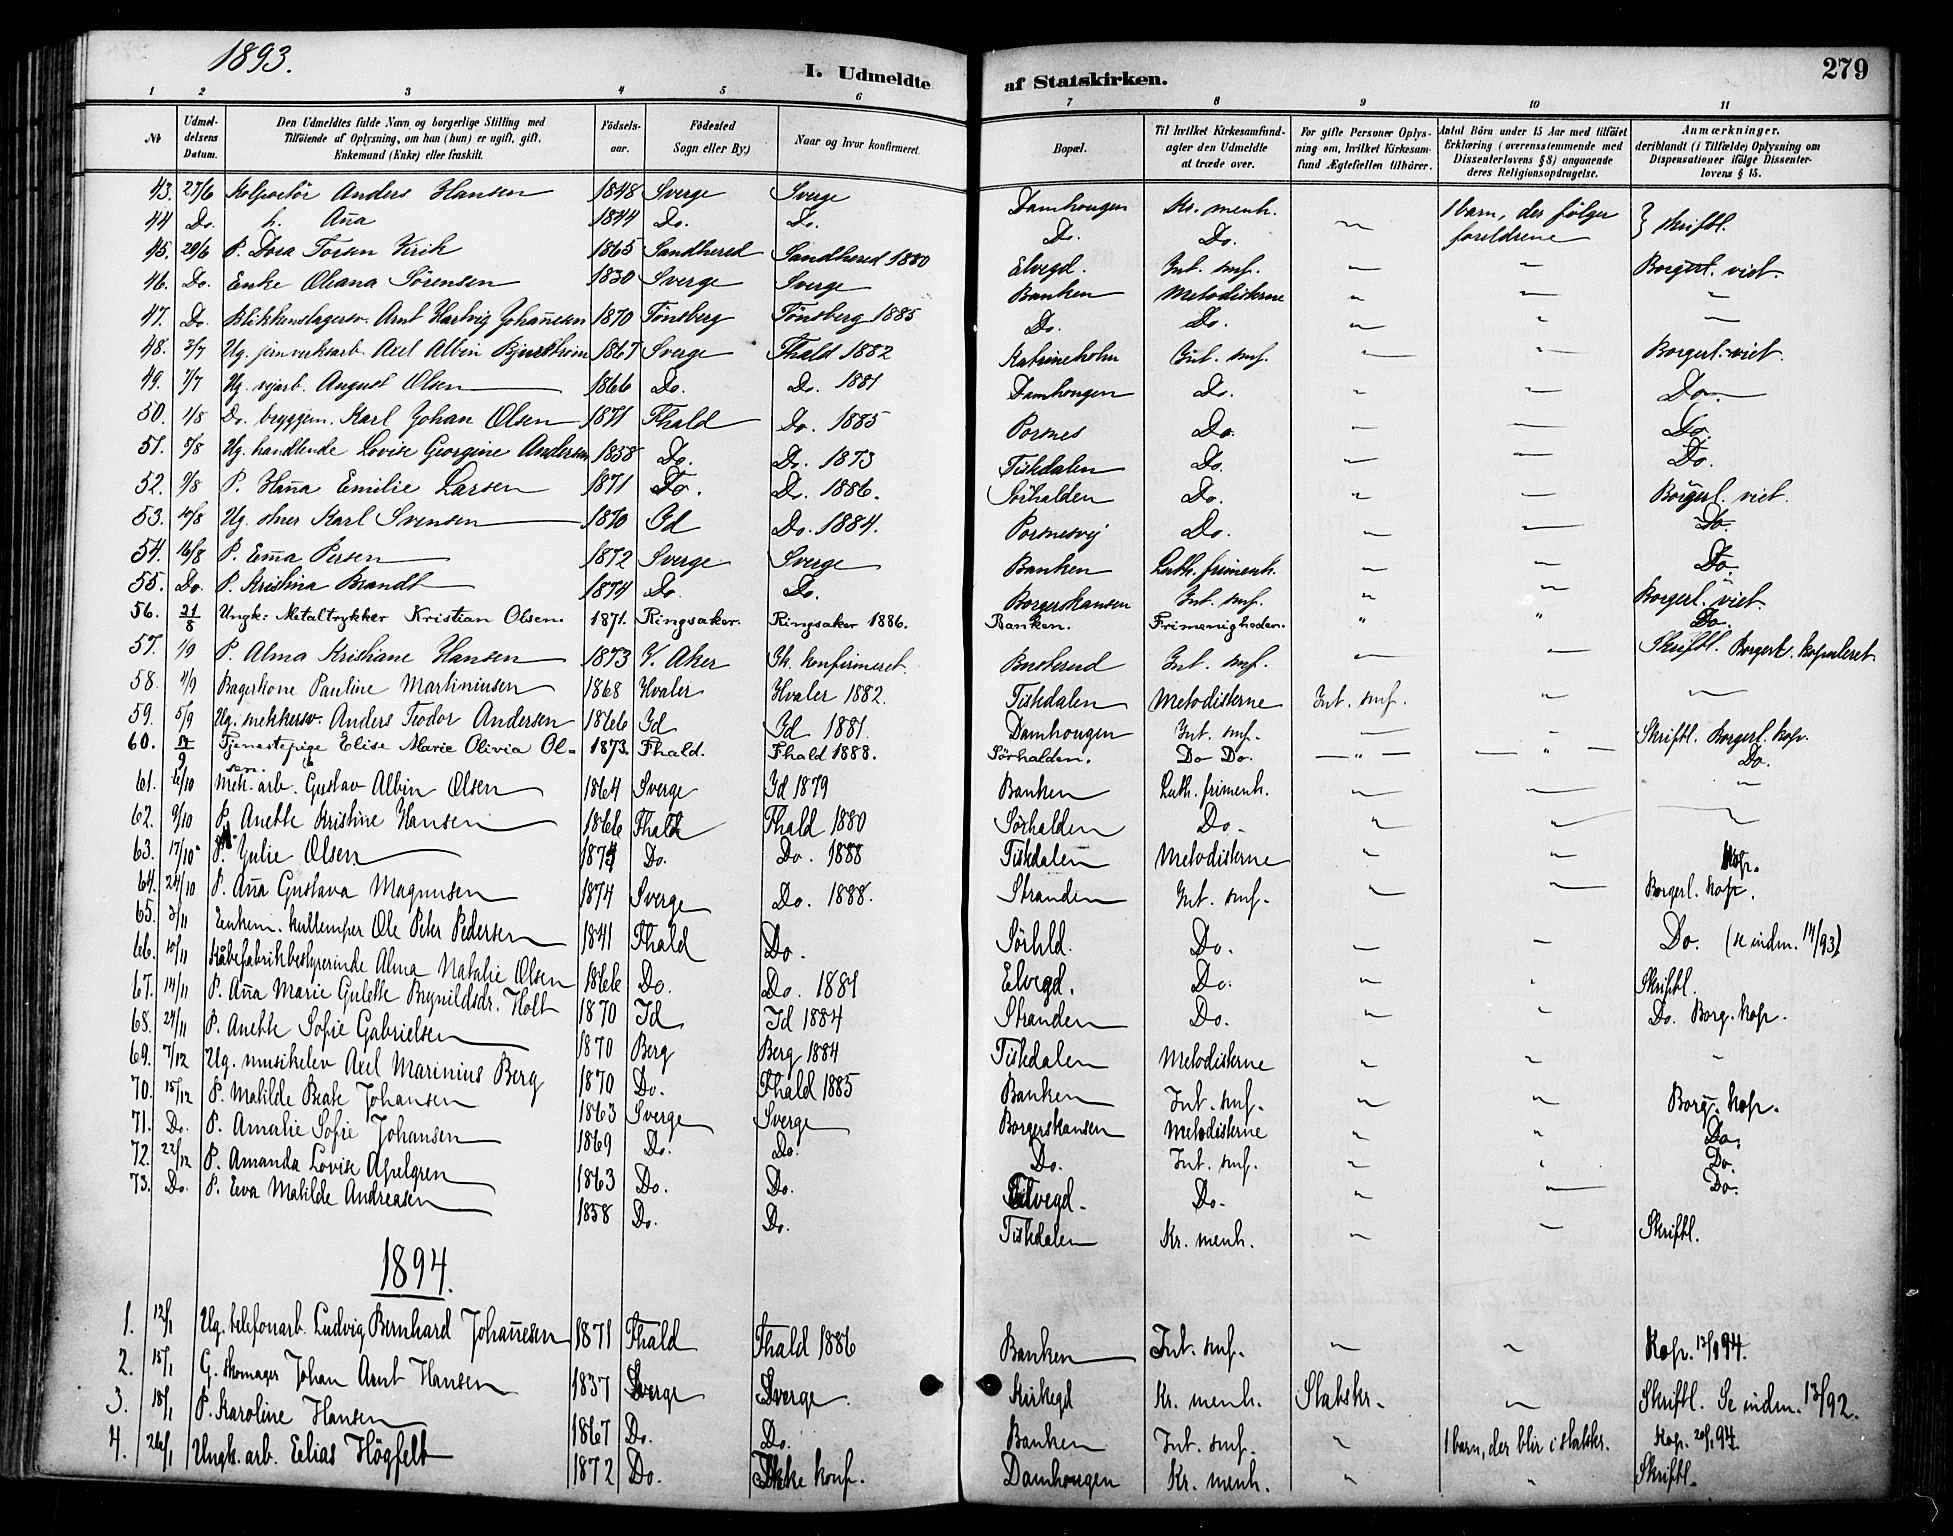 1893.
I. Udmeldte af Statskirken.
279
1 2 3 4 5 6 7 8 9 10 11
No
Udmeldelsens Datum.
Den Udmeldtes fulde Navn og borgerlige Stilling med Tilföiende af Oplysning, om han (hun) er ugift, gift, Enkemand (Enke) eller fraskilt.
Födselsaar.
Födested Sogn eller By.)
Naar og hvor konfirmeret.
Bopæl.
Til hvilket Kirkesamfund agter den Udmeldte at træde over.
For gifte Personer Oplysning om, hvilket Kirkesamfund Ægtefællen tilhörer.
Antal Börn under 15 Aar med tilföiet Erklæring (overensstemmende med Dissenterlovens § 8) angaaende deres Religionsopdragelse.
Anmærkninger, deriblandt (i Tilfælde) Oplysning om Dispensationer ifölge Dissenterlovens § 15.
43. 27/6 Kolportör Anders Hansen 1848 Sverge Sverge Damhougen Kr. menh. " 1 barn, der følger foreldrene } skriftl.
44 Do. h. Aña 1844 Do. Do. Do. Do.
45. 29/6 P. Dosa Tosen Kirik 1865 Sandhered Sandhered 1880 Elvegd. Int. smf. " " Borgerl. viet
46. Do. Enke Oleana Sörensen 1830 Sverge Sverge Banken Metodisterne " " "
47. Do. Blikkenslagersv. Arnt Hartvig Johañesen 1870 Tönsberg Tönsberg 1885 Do. Do. " " "
48. 3/7 Ug. jernverksarb. Axel Albin 1867 Sverge Fhald 1882 Katrineholm Int. smf. " " Borgerl. viet.
49. 7/7 Ug. vejarb. August Olsen 1866 Do. Do. 1881 Damhougen Do. " " Do.
50. 1/8 Do. bryggem. Karl Johan Olsen 1871 Fhald Do. 1885 Porsnes Do. " " Do.
51. 5/8 Ug. handlende Lovise Georgine Andersen 1858 Do. Do. 1873 Tistedalen Do. " " Do.
52. 9/8 P. Haña Emilie Larsen 1871 Do. Do. 1886. Sörhalden Do. " " Borgerl. viet.
53. 10/8 Ug. Karl Svensen 1870 Id Do. 1884. Porsnesvej Do. " " Do.
54. 16/8 P. Em̃a Persen 1872 Sverge Sverge Banken Luth. frimenh. " " Do.
55. Do. P. Kristina Brandt 1874 Do. Do. Borgerskansen Int. smf. " " Borgerl. viet
56. 21/8 Ungk. Metaltrykker Kristian Olsen. 1871. Ringsaker. Ringsaker 1886. Banken. Frimenigheden. " " Do.
57. 1/9 P. Alma Kristiane Hansen 1873 V. Aker Ik. konfirmeret. Busterud Int. smf. " " Skriftl. Borgerl. kopuleret
58. 4/9 Bagerkone Pauline Martiniusen 1868 Hvaler Hvaler 1882. Tistedalen Metodisterne Int. smf. " "
59. 5/9 Ug. snekkersv. Anders Teodor Andersen 1866 Id Id 1881. Damhougen Int. smf. " " Skriftl. Borgerl. kop.
60. 14/9 Tjenestepige Elise Marie Olivia Ol= sen. 1873. Fhald. Fhald 1888. Sörhalden. Do Do. " " Do.
61. 6/10 Mek. arb. Gustav Albin Olsen 1864 Sverge Id 1879 Banken Luth. frimenh. " " "
62. 9/10 P. Anette Kristine Hansen 1866 Fhald Fhald 1880 Sörhalden Do. " " "
63. 17/10 P. Julie Olsen 1874 Do. Do. 1888 Tistedalen Metodisterne " " Kop.
64. 24/10 P. Aña Gustava Magnusen 1874 Sverge Do. 1888. Stranden Int. smf. " " Borgerl. kop.
65. 3/11 Enkem. kullemper Ole Peter Pedersen 1841 Fhald Do. Sörhld. Do. " " Do. (se indm. 14/93)
66. 10/11 Kåbefabrikbestyrerinde Alma Natalie Olsen 1866 Do. Do. 1881 Elvegd. Do. " " Skriftl.
67. 14/11 P. Aña Marie Gulette Brynildsdr. Holt 1870 Id Id 1884 Stranden Do. " " Do. Borg. kop.
68. 24/11 P. Anette Sofie Gabrielsen 1870 Berg Berg 1884 Tistedalen Metodisterne " " "
69. 7/12 Ug. musikelev Axel Marinius Berg 1870 Do. Fhald 1885 Banken Int. smf. " " Borg. kop.
70. 15/12 P. Matilde Beate Johansen 1863 Sverge Sverge Borgerskansen Metodisterne " " Do.
71. Do. P. Amalie Sofie Johansen 1869 Do. Do. Do. Int. smf. " " Do.
72. 22/12 P. Amanda Lovise Apelgren 1863 Do. Do. Elvegd. Do. " " Do.
73. Do. P. Eva Matilde Andreasen 1858 Do. Do. Tistedalen Kr. menh. " " Skriftl.
1894.
1. 12/1 Ug. telefonarb. Ludvig Bernhard Johañesen 1871 Fhald Fhald 1886 Banken Int. smf. " " Kop. 13/1 94.
2. 15/1 G. skomager Johan Arnt Hansen 1837 Sverge Sverge Kirkegd Kr. menh. Statskr. " Skriftl. Se indm. 13/92.
3. 18/1 P. Karoline Hansen 1867 Do. Do. Banken Int. smf. " 1 barn, der blir i statskr. Kop. 20/1 94.
4. 26/1 Ungk. arb. Eelias Högfelt 1872 Do. Ikke konf. Damhougen Kr. menh. " " Skriftl.